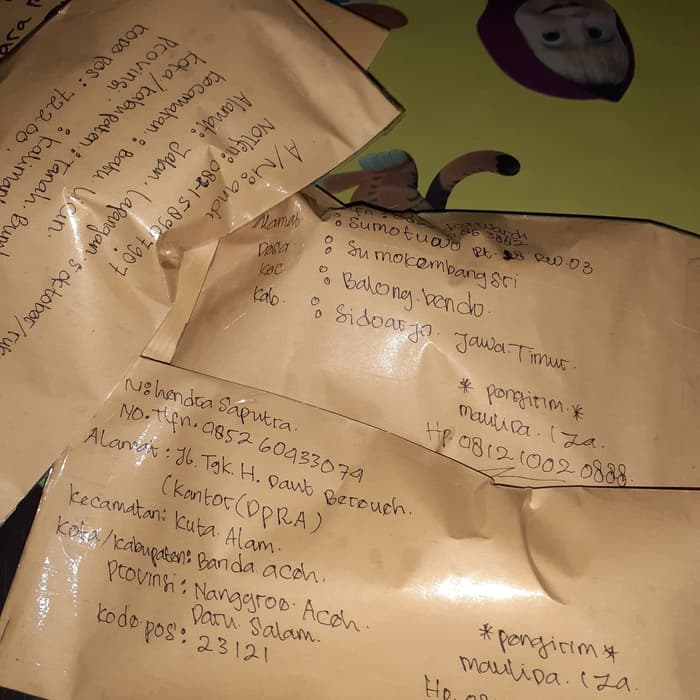 A/N: andi
No Tlfn: 082158967907
Alamat: Jalan. Lapangan 5 oktober/
kecamatan: Batu Licin.
kota/kabupaten: Tanah Bumbu
Provinsi: kaliman
kode pos: 72200.
Alamat : Sumotuwo Rt. 28 Rw.03
Desa : Sumokembangsri
Kec : Balong.bendo.
Kab. : Sidoarjo. Jawa.Timur.
* pengirim.*
maulida. Iza.
Hp. 081210020888.
N: hendra Saputra.
NO.Tlfn. 085260933079
Alamat: Jl. Tgk. H. Daut Bereueh.
(Kantor(DPRA)
Kecamatan: Kuta Alam.
Kota/kabupaten: Banda aceh.
Provinsi: Nanggroe. Aceh.
Daru Salam.
Kode.pos: 23121
*pengirim*
maulida. Iza.
Hp.